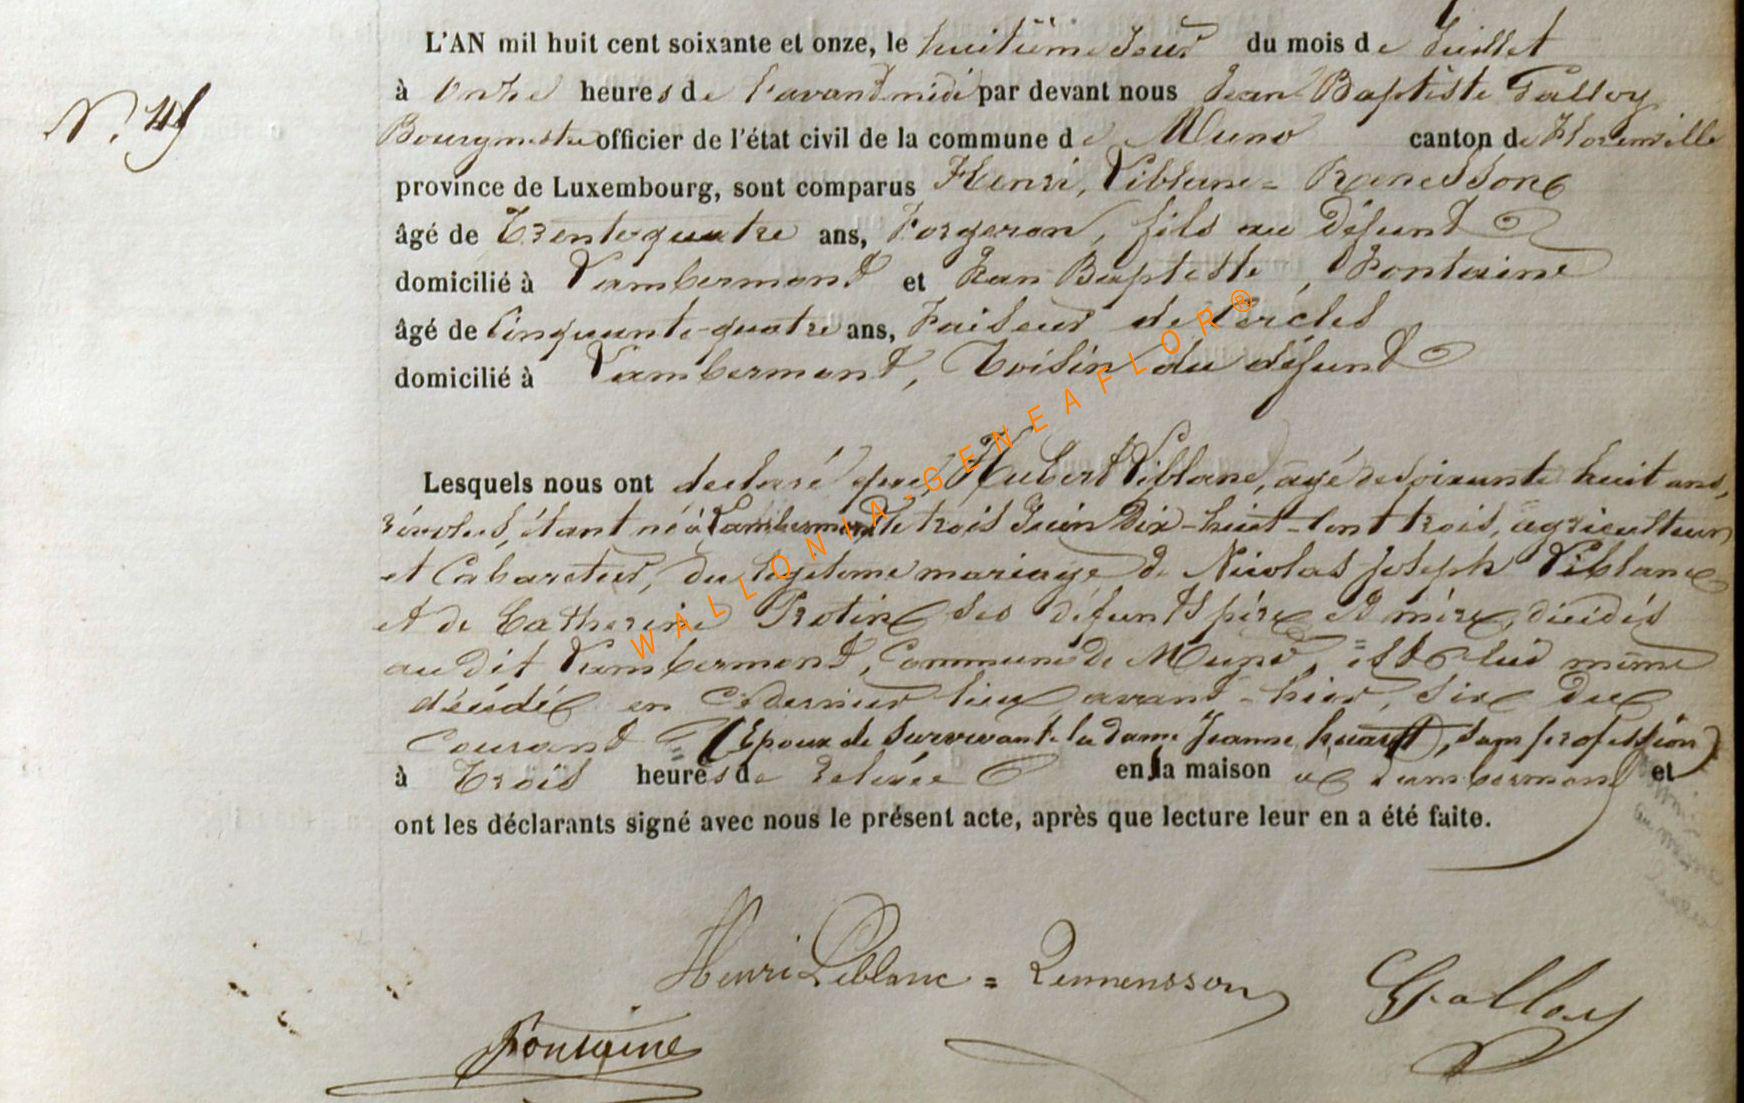 L'AN mil huit cent soixante et onze, le huitième Jour du mois de Juillet
N.
à Onze heures de l'avant midi par devant nous Jean Baptiste Galloy
Bourgmestre officier de l'état civil de la commune de Muno canton de Florenville
province de Luxembourg, sont comparus Henri, Leblanc = Renesson
âgé de Trente-quatre ans, Forgeron, fils au Défunt
domicilié à Lambermont et Jean Baptiste, Fontaine
âgé de Cinquante-quatre ans, Faiseur de Cercles
domicilié à Lambermont, Voisin du défunt
Lesquels nous ont declaré que Hubert Leblanc, agé de soixante huit ans,
révolus, étant né à Lambermont le trois Juin Dix-huit-Cent trois, agriculteur
et Cabaretier, du légitime mariage de Nicolas Joseph Leblanc
et de Catherine Protin ses défunts père et mère, décédés
au dit Lambermont, Commune de Muno, est lui même
décédé en ce dernier lieu avant-hier, six du
Courant = (Epoux de survivante la dame Jeanne huart, sans profession)
à Trois heures de relevée en la maison a Lambermont et
ont les déclarants signé avec nous le présent acte, après que lecture leur en a été faite.
Henri Leblanc = Rennesson
Galloy
Fontaine
WALLONIA-GENEAFLOR®